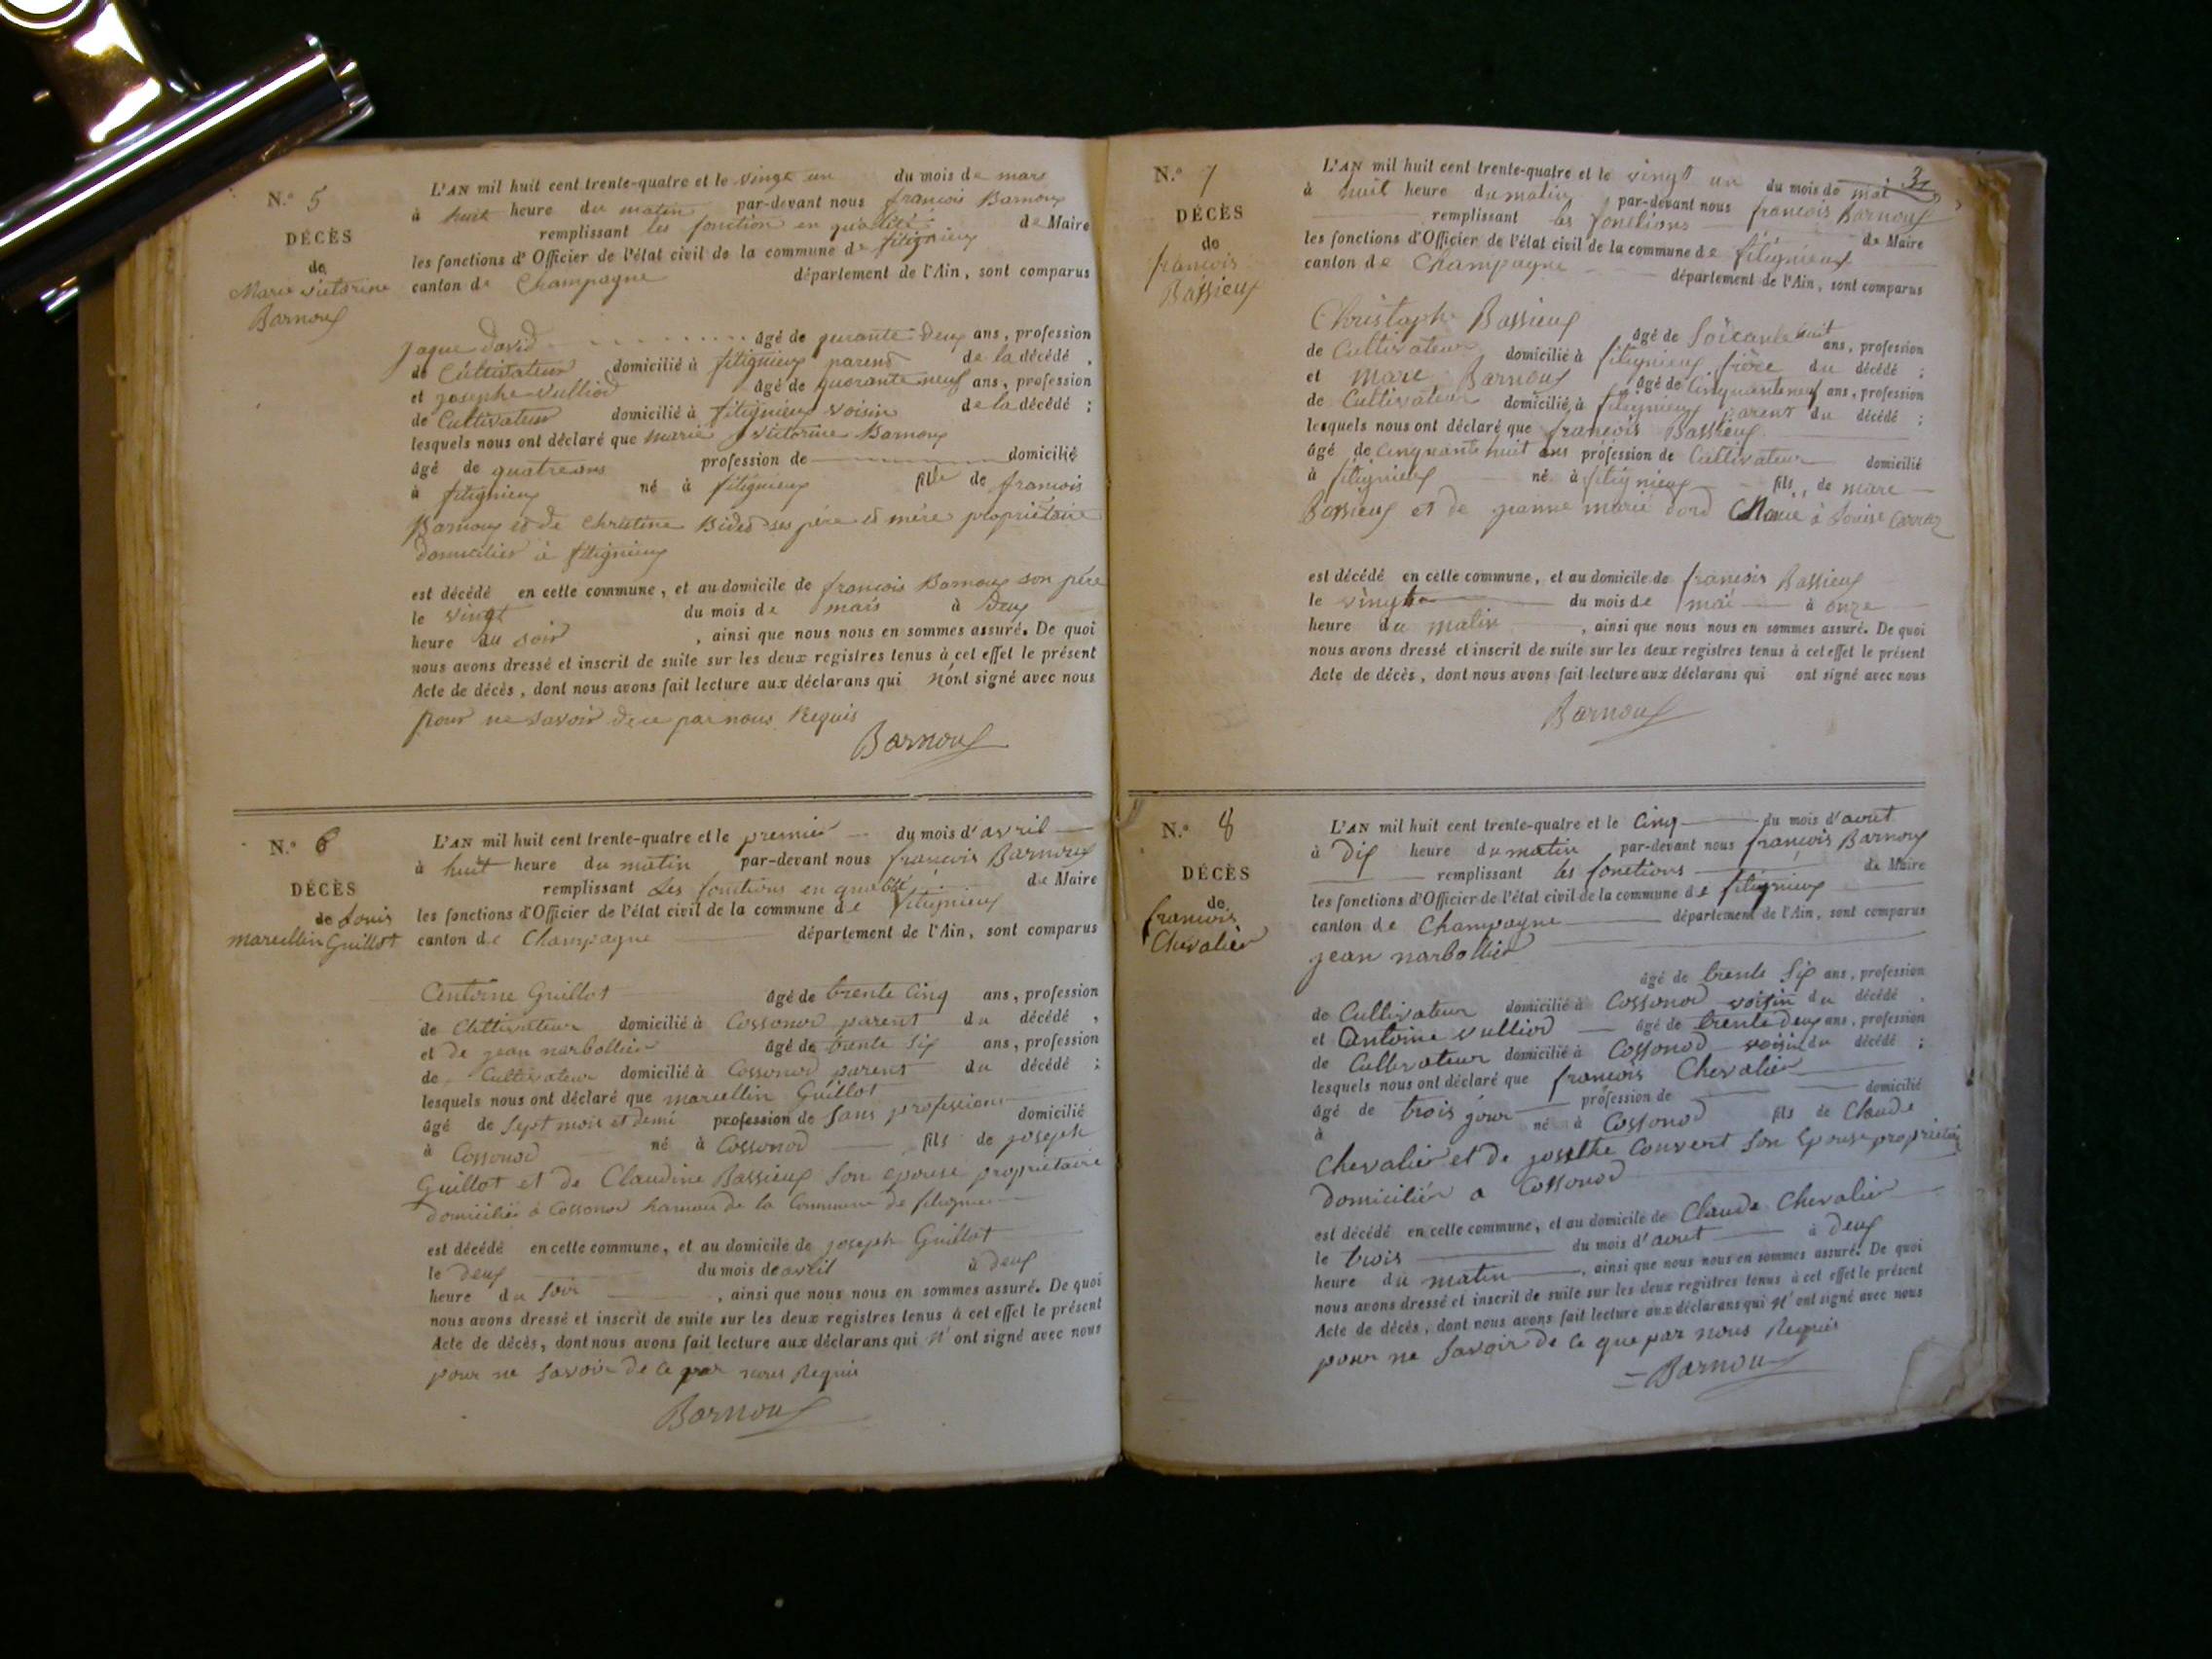 N.° 5
DÉCÈS
de
Marie victorine
Barnoux
L'AN mil huit cent trente-quatre et le vingt un du mois de mars
à huit heure du matin par-devant nous françois Barnoux
remplissant les fonction en qualité de Maire
les fonctions d'Officier de l'état civil de la commune de fitignieux
canton de Champagne département de l'Ain, sont comparus
jaque david âgé de quarante deux ans, profession
de Cultivateur domicilié à fitignieux parent de la décédé,
et josephe vulliod âgé de quarante neuf ans, profession
de Cultivateur domicilié à fitignieux voisin de la décédé;
lesquels nous ont déclaré que marie victorine Barnoux
âgé de quatre ans profession de domicilié
à fitignieux né à fitignieux fille de françois
Barnoux et de Christine Bidet ses père et mère propriétaire
domiciliés à fitignieux
est décédé en cette commune, et au domicile de françois Barnoux son père
le vingt du mois de mars à deux
heure du soir, ainsi que nous nous en sommes assuré. De quoi
nous avons dressé et inscrit de suite sur les deux registres tenus à cet effet le présent
Acte de décès, dont nous avons fait lecture aux déclarans qui n'ont signé avec nous
pour ne savoir de ce par nous Requis
Barnoux
N.° 6
DÉCÈS
de Louis
marcellin Guillot
L'AN mil huit cent trente-quatre et le premier du mois d'avril
à huit heure du matin par-devant nous françois Barnoux
remplissant Les fonctions en qualité de Maire
les fonctions d'Officier de l'état civil de la commune de fitignieux
canton de Champagne département de l'Ain, sont comparus
Antoine Guillot âgé de trente Cinq ans, profession
de Clttivateur domicilié à Cossonod parent du décédé,
et de jean narbollier âgé de trente Six ans, profession
de Cultivateur domicilié à Cossonod parent du décédé;
lesquels nous ont déclaré que marcellin Guillot
âgé de Sept mois et demi profession de Sans profession domicilié
à Cossonod né à Cossonod fils de joseph
Guillot et de Claudine Bassieux Son epouse propriétaire
domiciliés à Cossonod hamau de la Commune de fitignieux
est décédé en cette commune, et au domicile de joseph Guillot
le deux du mois de avril à deux
heure du Soir, ainsi que nous nous en sommes assuré. De quoi
nous avons dressé et inscrit de suite sur les deux registres tenus à cet effet le présent
Acte de décès, dont nous avons fait lecture aux déclarans qui N'ont signé avec nous
pour ne Savoir de Ce par nous Requis
Barnoux
3
N.° 7
DÉCÈS
de
françois
Bassieux
L'AN mil huit cent trente-quatre et le vingt un du mois de mai
à huit heure du matin par-devant nous françois Barnoux
remplissant les fonctions de Maire
les fonctions d'Officier de l'état civil de la commune de fitignieux
canton de Champagne département de l'Ain, sont comparus
Christophe Bassieux âgé de Soixante huit ans, profession
de Cultivateur domicilié à fitignieux frère du décédé;
et marc Barnoux âgé de Cinquante neuf ans, profession
de Cultivateur domicilié à fitignieux parent du décédé;
lesquels nous ont déclaré que françois Bassieux
âgé de Cinquante huit ans profession de Cultivateur domicilié
à fitignieux né à fitignieux fils de marc
Bassieux et de jeanne marie dord Marie à Louise Carrez
est décédé en cette commune, et au domicile de françois Bassieux
le vingt du mois de mai à onze
heure du matin, ainsi que nous nous en sommes assuré. De quoi
nous avons dressé et inscrit de suite sur les deux registres tenus à cet effet le présent
Acte de décès, dont nous avons fait lecture aux déclarans qui ont signé avec nous
Barnoux
N.° 8
DÉCÈS
de
françois
Chevalier
L'AN mil huit cent trente-quatre et le Cinq du mois d'avout
à dix heure du matin par-devant nous françois Barnoux
remplissant les fonctions de Maire
les fonctions d'Officier de l'état civil de la commune de fitignieux
canton de Champagne département de l'Ain, sont comparus
jean narbollier
âgé de trente Six ans, profession
de Cultivateur domicilié à Cossonod voisin du décédé,
et Antoine vulliod âgé de trente deux ans, profession
de Cultivateur domicilié à Cossonod voisin du décédé;
lesquels nous ont déclaré que françois Chevalier
âgé de trois jour profession de domicilié
à né à Cossonod fils de Claude
Chevalier et de josethe Convert Son Epouse propriétaire
domiciliér a Cossonod
est décédé en cette commune, et au domicile de Claude Chevalier
le trois du mois d'avout à deux
heure du matin, ainsi que nous nous en sommes assuré. De quoi
nous avons dressé et inscrit de suite sur les deux registres tenus à cet effet le présent
Acte de décès, dont nous avons fait lecture aux déclarans qui N'ont signé avec nous
pour ne Savoir de Ce que par nous Requis
Barnoux